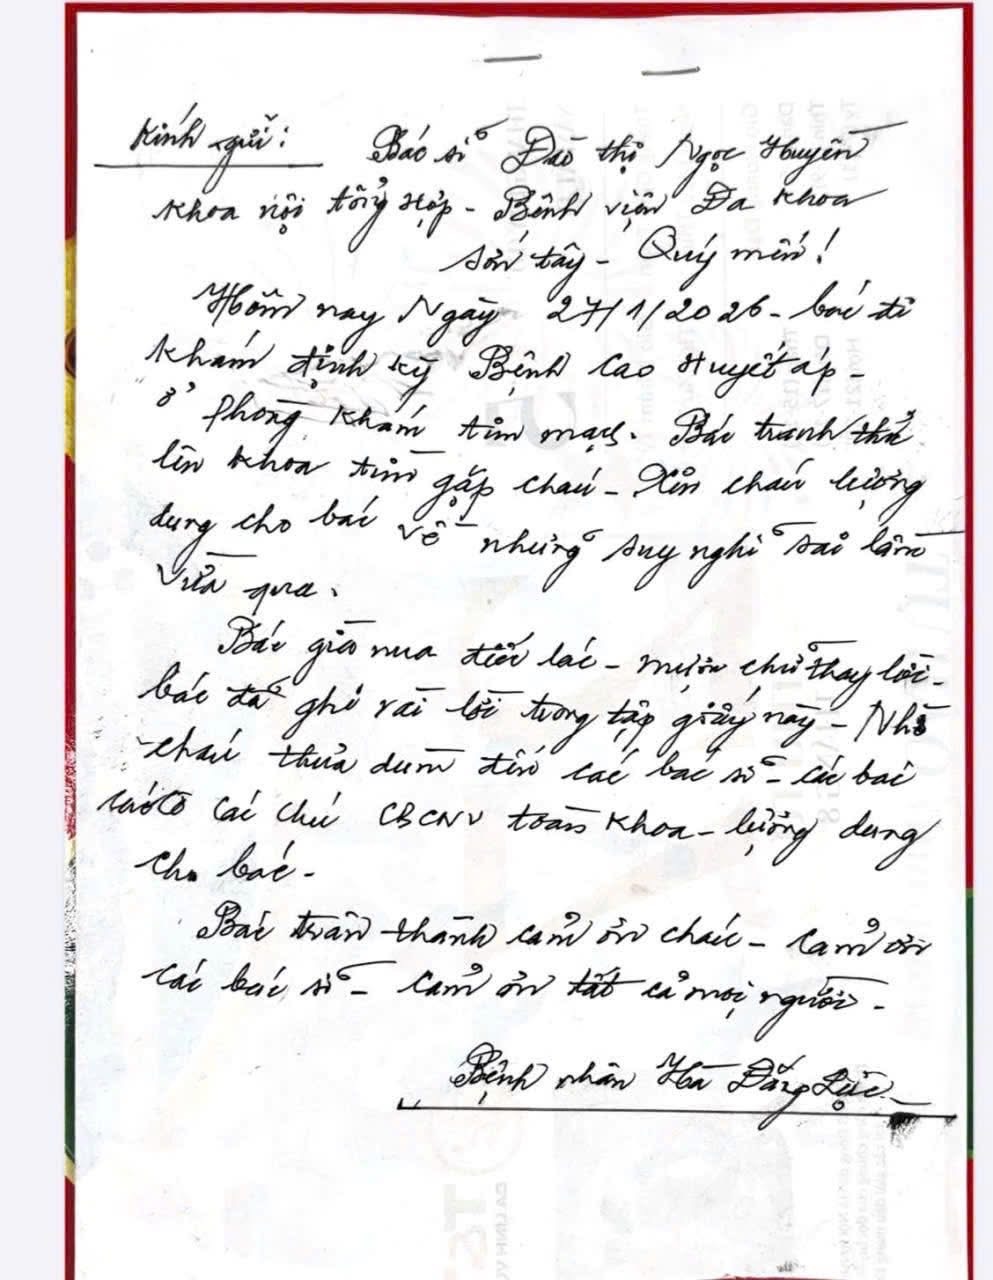 Kính gửi: Bác sĩ Đào thị Ngọc Huyền
Khoa nội tổng Hợp - Bệnh viện Đa Khoa
Sơn tây - Quý mến!
Hôm nay Ngày 27/1/2026 - bác đi
Khám định kỳ Bệnh Cao Huyết áp -
ở phòng Khám tim mạch. Bác tranh thủ
lên Khoa tìm gặp cháu - Xin cháu lượng
dung cho bác về những suy nghĩ sai lầm
vừa qua.
Bác già nua điếc lác - mượn chữ thay lời -
bác đã ghi vài lời trong tập giấy này - Nhờ
cháu thưa dùm đến các bác sĩ - các bác
các cô các chú CBCNV toàn Khoa - lượng dung
cho bác -
Bác trân thành cảm ơn cháu - Cảm ơn
các bác sĩ - cảm ơn tất cả mọi người -
Bệnh nhân Hà Đăng Lực